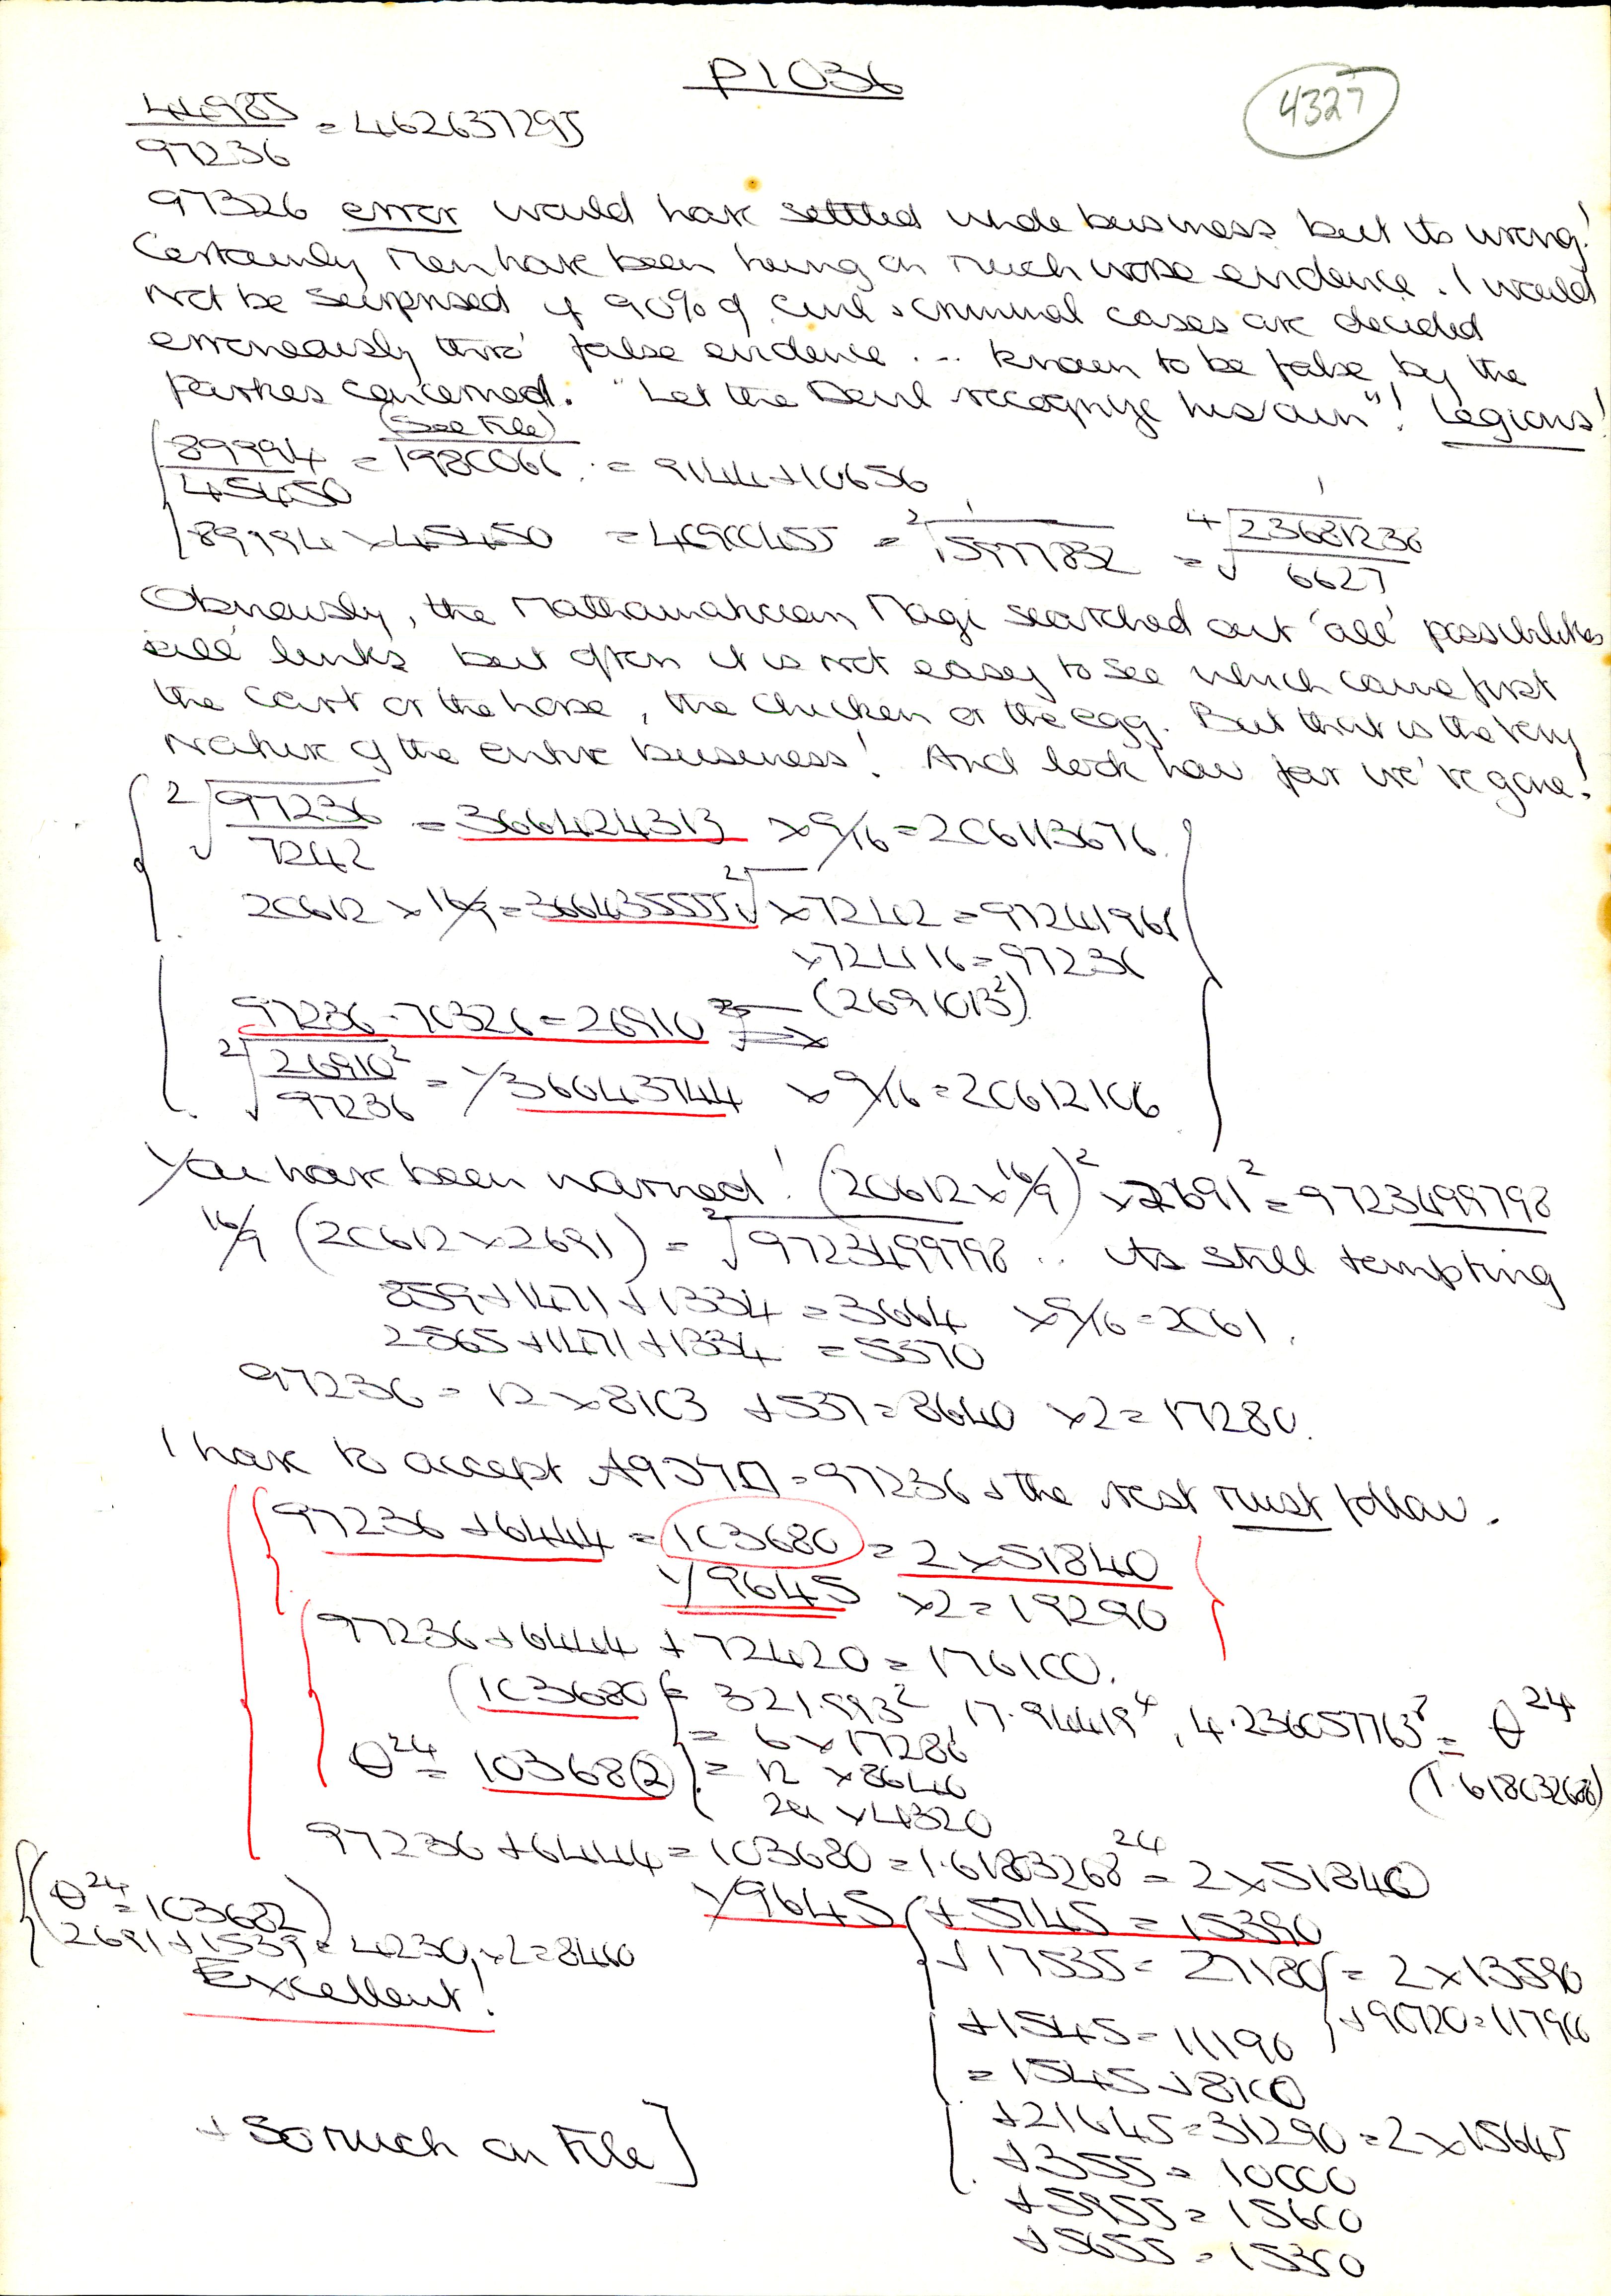 P1036
4327
44985/97236 = 462637295
97326 error would have settled whole business but its wrong!
Certainly Men have been hung on much worse evidence. I would
not be surprised if 90% of civil & criminal cases are decided
erroneously thro' false evidence ... known to be false by the
parties concerned. "Let the Devil recognize his own"! Legions!
(See File)
89994/45450 = 1980066 . = 9144+10656
89994 × 45450 = 40900455
Obviously, the Mathamatician Magi searched out 'all' possibilities
'all' links but often it is not easy to see which came first
the cart or the horse, the chicken or the egg. But that is the very
nature of the entire business! And look how far we've gone!
2√97236/7242 = 366424313 × 9/16 = 206113676
20612 × 16/9 = 366435555 2√ × 72412 = 97241968
× 72416 = 97236
97236 - 70326 = 26910 (2691013²)
2√26910²/97236 = 1/36643744 × 9/16 = 20612106
You have been warned! (20612 × 16/9)² × 2691² = 9723499798
16/9 (20612 × 2691) = 2√9723499798 .. its still tempting
859 + 1471 + 1334 = 3664 × 9/16 = 2061.
2565 + 1471 + 1334 = 5370
97236 = 12 × 8103 + 537 = 8640 × 2 = 17280.
I have to accept = 97236 & the rest must follow.
97236 + 6444 = 103680 = 2 × 51840
1/9645 × 2 = 19290
97236 + 6444 + 72420 = 176100.
(103680 = 321.993² 17.94419⁴, 4.236057763⁸ = θ²⁴
= 6 × 17280
θ²⁴ = 103682 = 12 × 8640
(1.618032688)
24 × 4320
97236 + 6444 = 103680 = 1.61803268²⁴ = 2 × 51840
(θ²⁴ = 103682)
1/9645 (+ 5745 = 15390
2691 + 1539 = 4230, × 2 = 8460
+ 17535 = 27180 = 2 × 13590
Excellent!
+ 90720 = 117900
+ 1545 = 11190
= 1545 + 8100
+ 21645 = 31290 = 2 × 15645
+ So much on File]
+ 355 = 10000
+ 5955 = 15600
+ 5655 = 15300